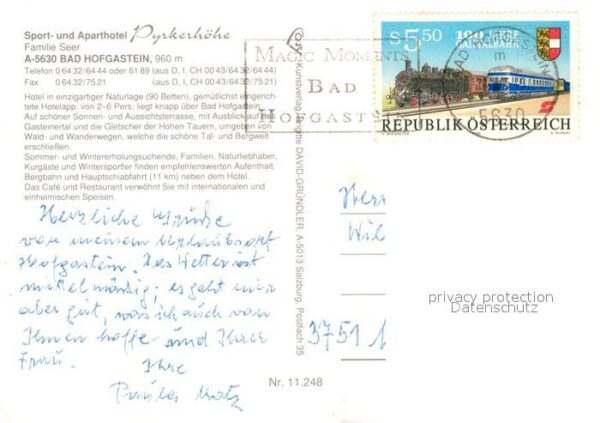 Sport- und Aparthotel Pyrkerhöhe
Familie Seer
A-5630 BAD HOFGASTEIN, 960 m
Telefon 0 64 32/64 44 oder 61 89 (aus D, I, CH 00 43/64 32/64 44)
Fax 0 64 32/75 21 (aus D, I, CH 00 43/64 32/75 21)
Hotel in einzigartiger Naturlage (90 Betten), gemütlichst eingerich-
tete Hotelapp. von 2–6 Pers; liegt knapp über Bad Hofgastein
Auf schöner Sonnen- und Aussichtsterrasse, mit Ausblick auf das
Gasteinertal und die Gletscher der Hohen Tauern, umgeben von
Wald- und Wanderwegen, welche die schöne Tal- und Bergwelt
erschließen.
Sommer- und Wintererholungsuchende, Familien, Naturliebhaber,
Kurgäste und Wintersportler finden empfehlenswerten Aufenthalt.
Bergbahn und Hauptschiabfahrt (11 km) neben dem Hotel.
Das Café und Restaurant verwöhnt Sie mit internationalen und
einheimischen Speisen.
Herzliche Grüße
von meinem Urlaubsort
Hofgastein. Das Wetter ist
mittelmäßig; es geht mir
aber gut, was ich auch von
Ihnen hoffe und Ihrer
Frau. Ihre
Paula
Nr. 11.248
Kunstverlag Brigitte DAVID-GRÜNDLER, A-5013 Salzburg, Postfach 35
MAGIC MOMENTS
BAD
HOFGASTEIN
5630
S 5,50
100 JAHRE
GAILTALBAHN
REPUBLIK ÖSTERREICH
Herr
Wil
3751
privacy protection
Datenschutz